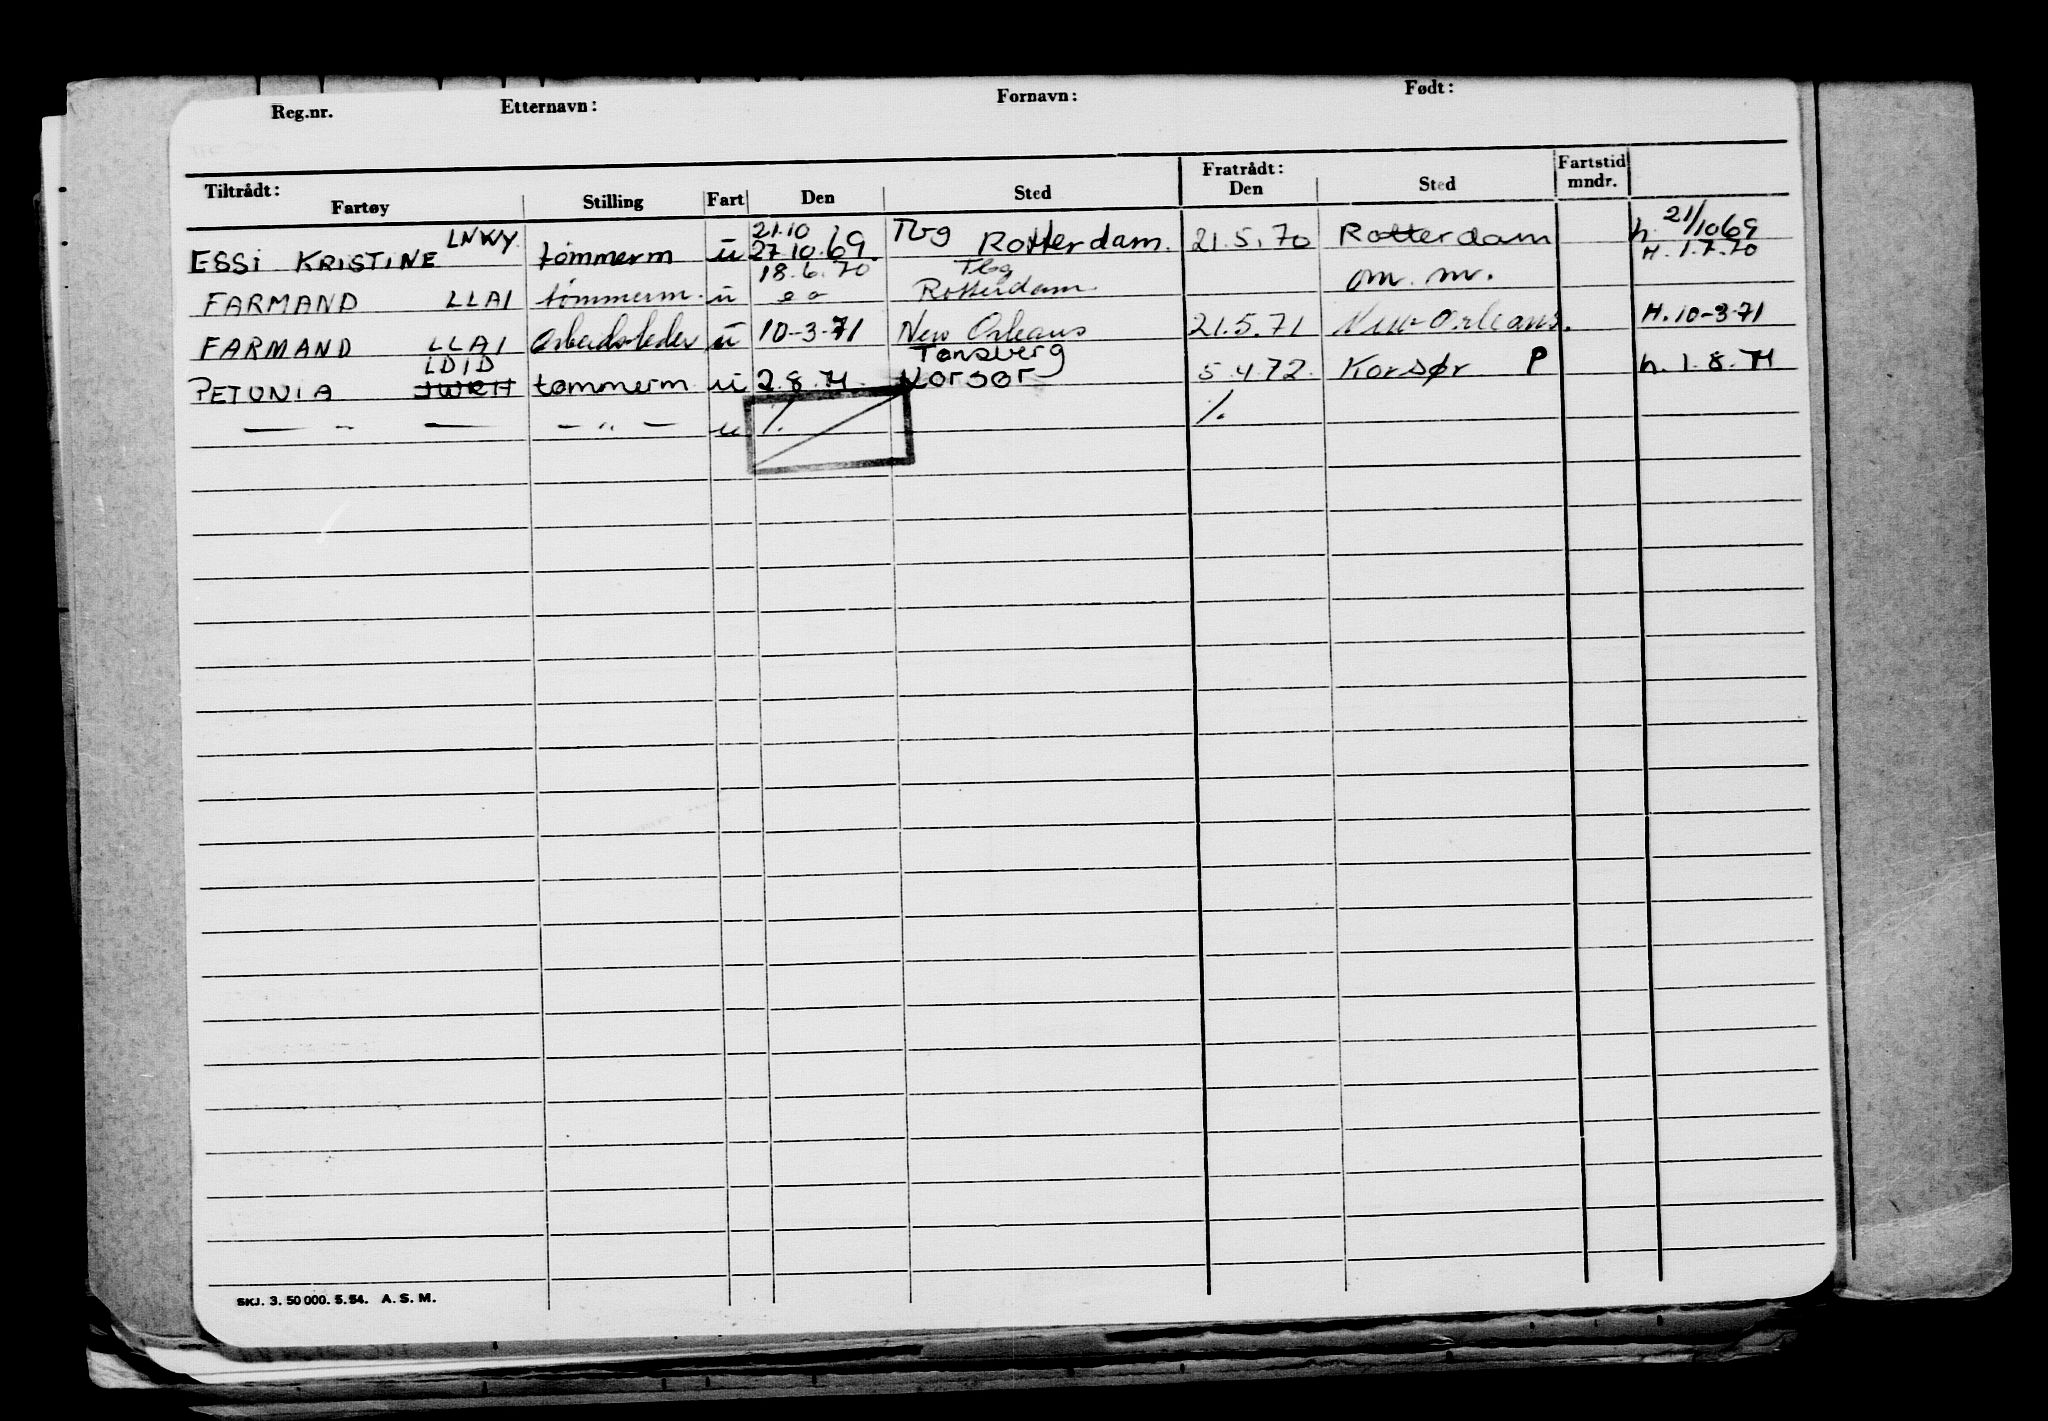 Reg.nr. Etternavn: Fornavn: Født:
Tiltrådt: Fratrådt: Fartstid
Fartøy Stilling Fart Den Sted Den Sted mndr.
21.10 Tbg 21/
ESSI KRISTINE LNKY tømmerm u 27.10.69. Rotterdam. 21.5.70 Rotterdam h. 1069
18.6.70 Tbg H. 1.7.70
FARMAND LLAI tømmerm. u Rotterdam om. m.
FARMAND LLAI Arbeidsleder u 10-3-71 New Orleans 21.5.71 New Orleans. H. 10-3-71
LDID Tønsberg
PETUNIA JWRH tømmerm u 2.8.71. Korsør 5.4.72. Korsør P h. 1.8.71
— " — — " — u ./. ./.
SKJ. 3. 50 000. 5.54. A. S. M.